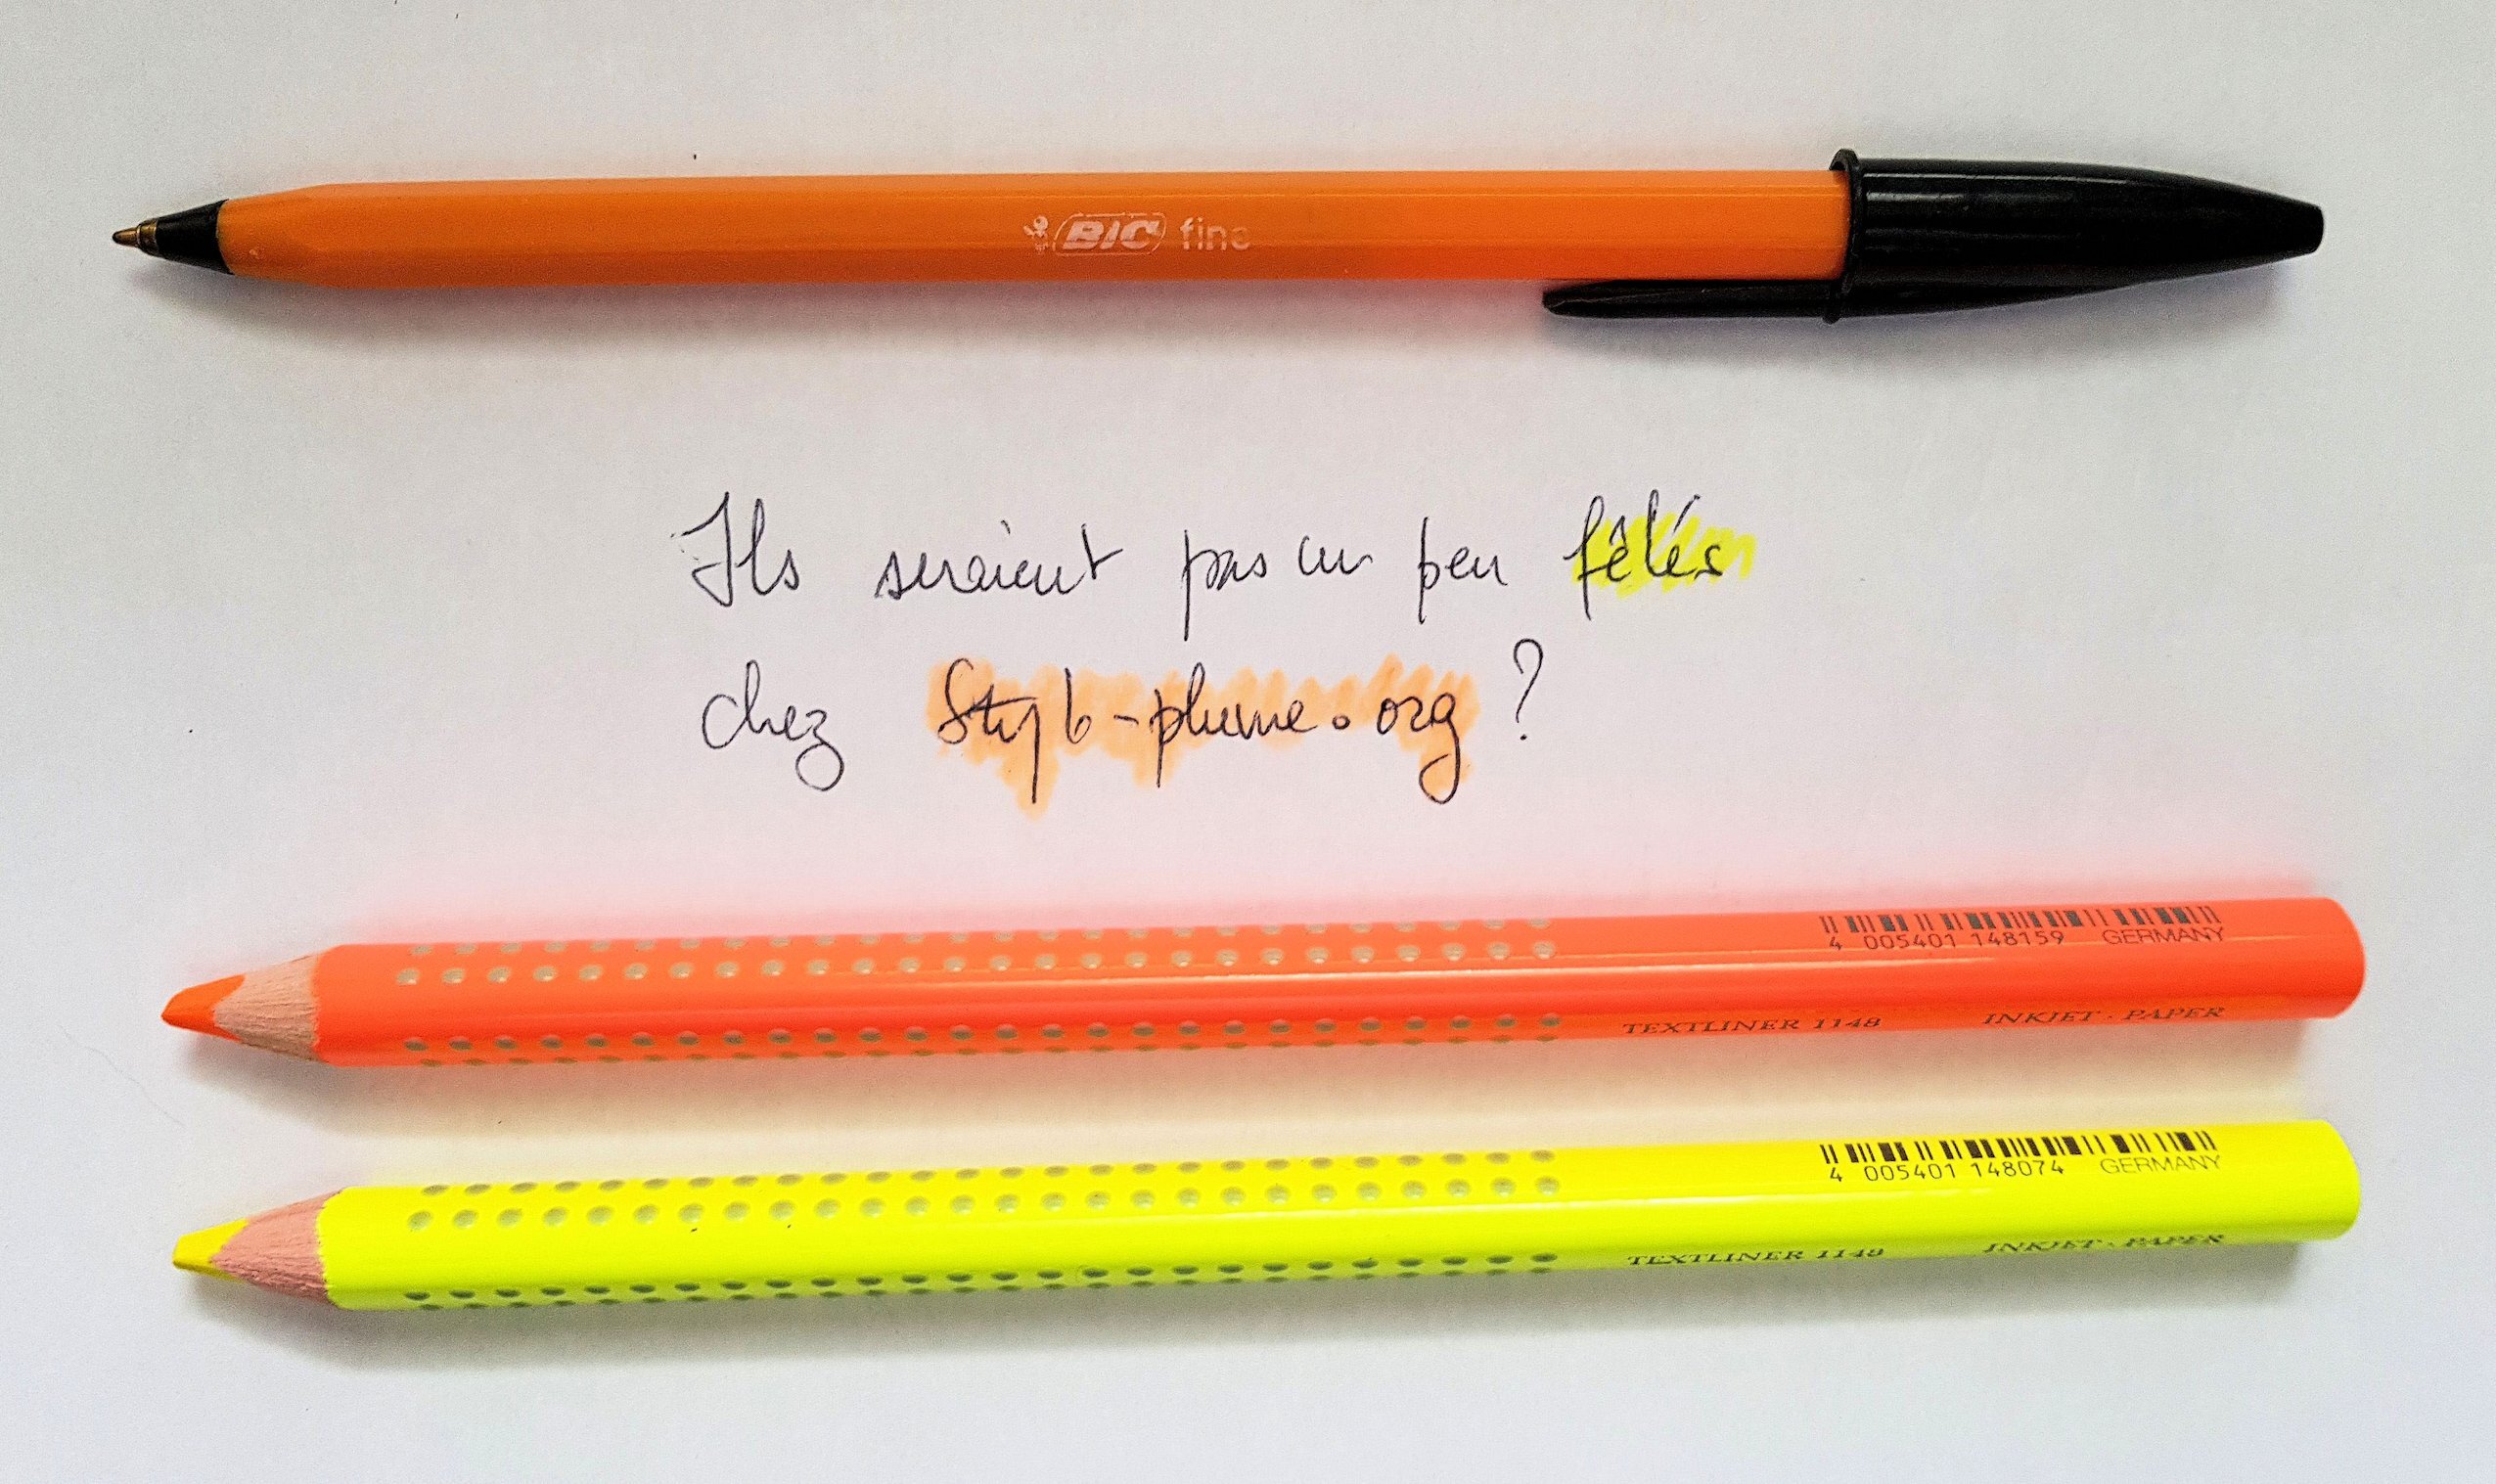 BIC fine
Ils seraient pas un peu fêlés
chez Stylo-plume.org ?
4 005401 148159 GERMANY
TEXTLINER 1148 INKJET · PAPER
4 005401 148074 GERMANY
TEXTLINER 1148 INKJET · PAPER